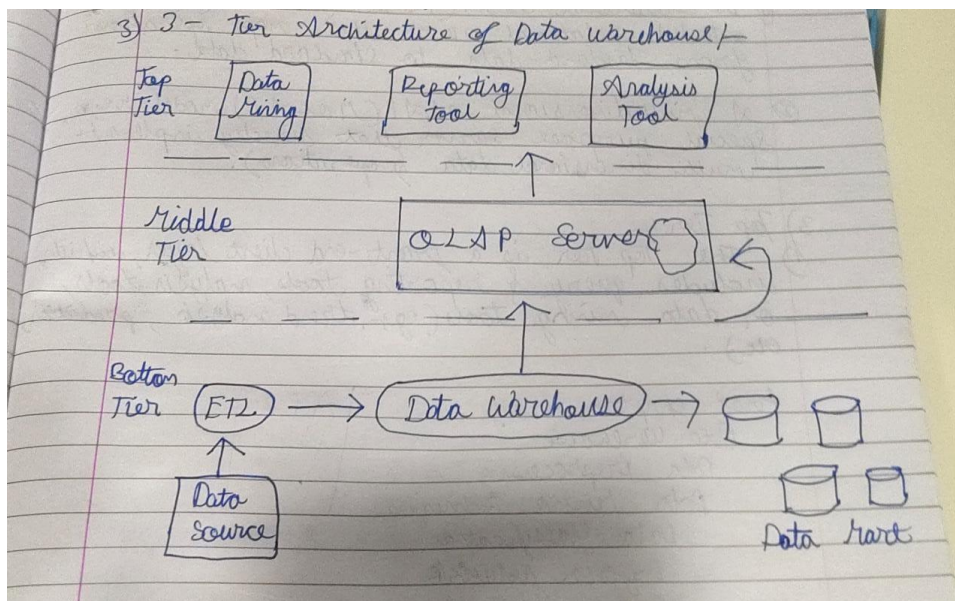 3) 3 - Tier Architecture of Data Warehouse/-
Top
Tier
Data
Mining
Reporting
Tool
Analysis
Tool
Middle
Tier
OLAP Server
Bottom
Tier
ETL
Data Warehouse
Data
Source
Data Mart